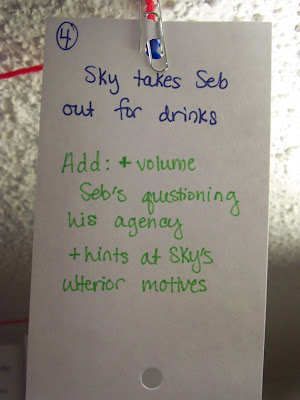 4
Sky takes Seb
out for drinks
Add: + volume
Seb's questioning
his agency
+ hints at Sky's
ulterior motives